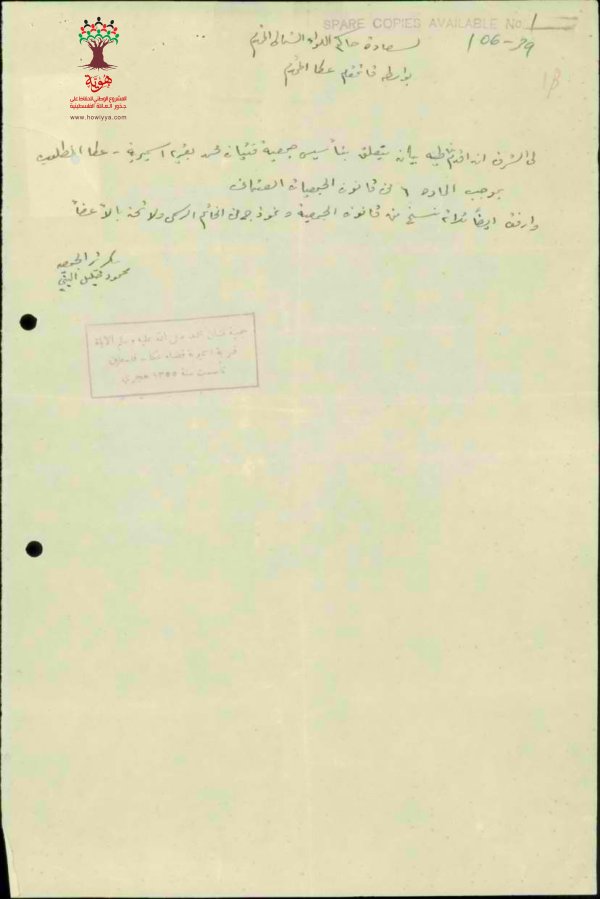 SPARE COPIES AVAILABLE No. 1
106-39
سعادة حاكم اللواء الشمالي المحترم
بواسطة قائمقام عكا المحترم
لي الشرف ان اقدم طيه بيان يتعلق بتأسيس جمعية فتيان محمد بقرية السميرية - عكا المطلوب
بموجب المادة ٦ من قانون الجمعيات العثماني
وارفق ايضاً ثلاثة نسخ من قانون الجمعية و نموذج من الخاتم الرسمي ولائحة بالاعضاء
محمود
جمعية فتيان محمد صلى الله عليه وسلم
قرية السميرية قضاء عكا - فلسطين
تأسست سنة ١٣٥٥ هجري
هوية
المشروع الوطني للحفاظ على
جذور العائلة الفلسطينية
www.howiyya.com